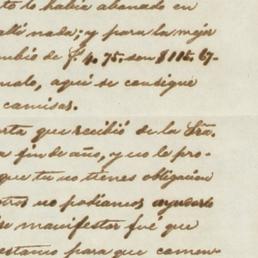 to le habia abonado en
allí nada; y para la mejor
mbio de £.4.75. son $115.67-
malo, aquí se consigue
camisas.
rta que recibió de la Sra.
a fin de año, y no le pro-
que tu no tienes obligacion
otros no podiamos ayudarle
se manifestar fué que
estamos para que comen-